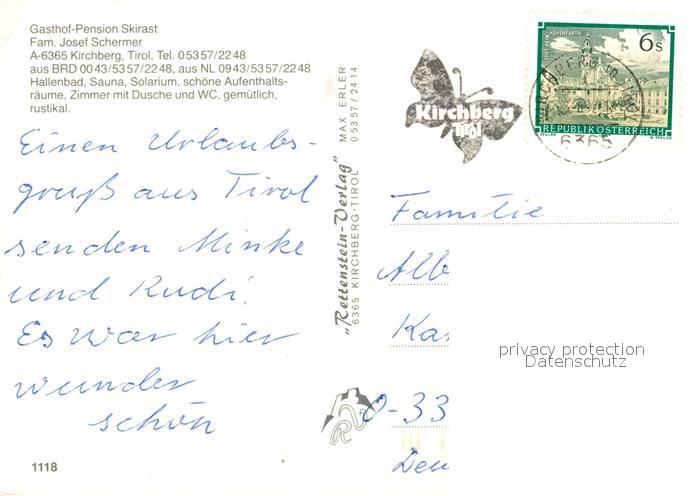 Gasthof-Pension Skirast
Fam. Josef Schermer
A-6365 Kirchberg, Tirol, Tel. 0 53 57/22 48
aus BRD 00 43/53 57/22 48, aus NL 09 43/53 57/22 48
Hallenbad, Sauna, Solarium, schöne Aufenthalts-
räume, Zimmer mit Dusche und WC, gemütlich,
rustikal.
Einen Urlaubs-
gruß aus Tirol
senden Minke
und Rudi.
Es war hier
wunder
schön
1118
"Rettenstein-Verlag"
6365 KIRCHBERG-TIROL
MAX ERLER
0 53 57 / 24 14
Kirchberg
Tirol
6 S
REPUBLIK ÖSTERREICH
6365
Familie
Alb
Ka
D-33
Deu
privacy protection
Datenschutz